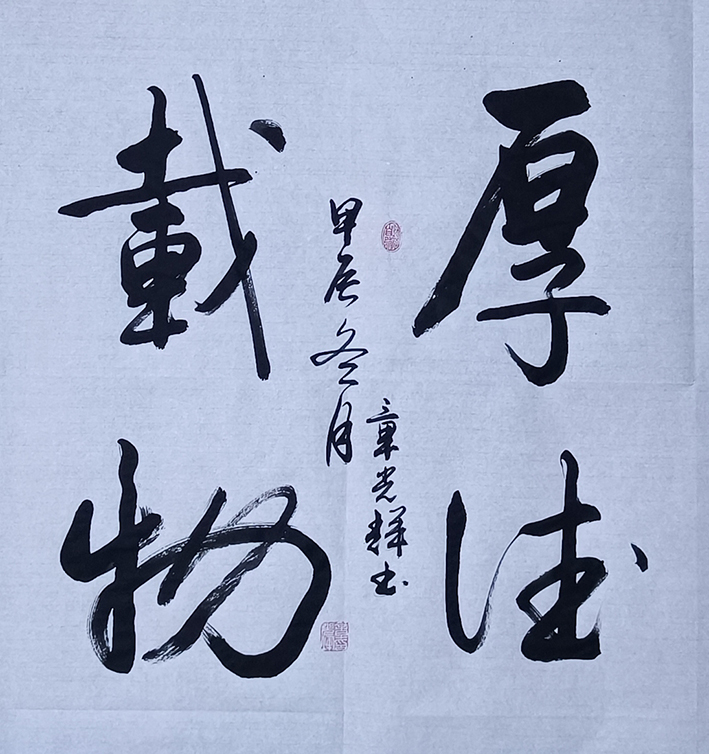 厚德
載物
甲辰冬月
章光輝书